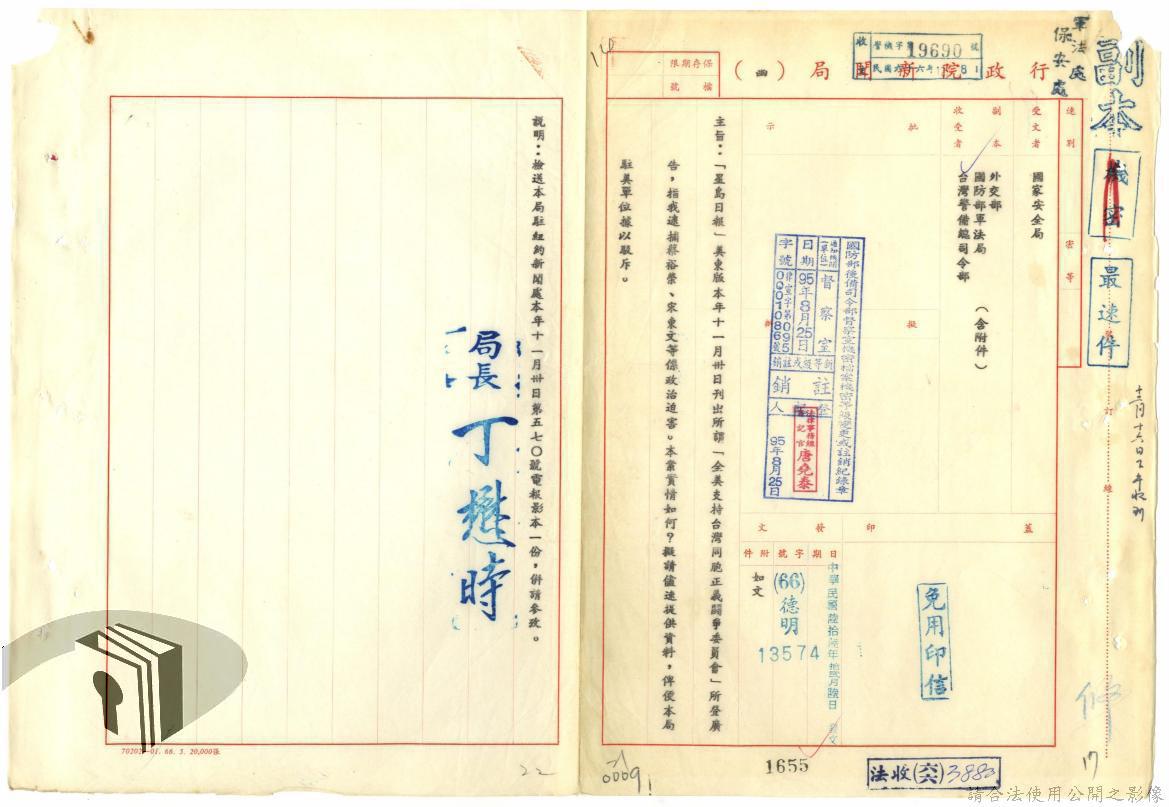 副本
機密
最速件
軍法處
保安處
行政院新聞局（函）
收
警機字第19690號
保存期限
檔號
速別
密等
受文者
國家安全局
副本收受者
外交部
國防部軍法局
台灣警備總司令部
（含附件）
批示
擬辦
國防部後備司令部督察室機密檔案機密等級變更或註銷紀錄章
通知機關（單位）
督察室
日期
95年8月25日
字號
律宣字第0950001086號
新等級或註銷
註銷
登記人
法律事務組書記官
唐堯泰
95年8月25日
蓋印
發文
日期
字號
附件
中華民國陸拾陸年拾貳月陸日
發文
(66)德明
13574
如文
免用印信
主旨：「星島日報」美東版本年十一月卅日刊出所謂「全美支持台灣同胞正義鬪爭委員會」所登廣
告，指我逮捕蔡裕榮、宋東文等係政治迫害。本案實情如何？擬請儘速提供資料，俾便本局
駐美單位據以駁斥。
說明：檢送本局駐紐約新聞處本年十一月卅日第五七〇號電報影本一份，併請參攷。
局長 丁懋時
訂
線
十二月十六日下午收到
1655
法收(六六)3883
17
22
14
0009
70201-01. 66. 3. 20,000張
請合法使用公開之影像